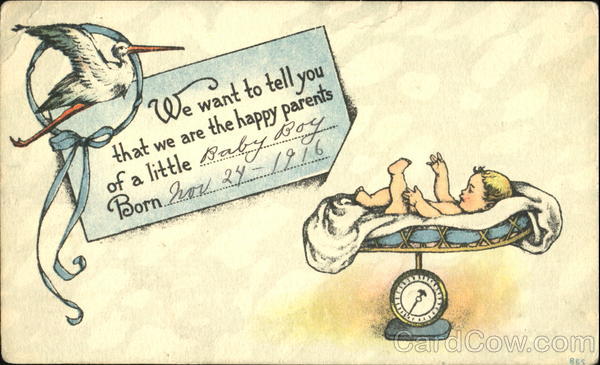 We want to tell you
that we are the happy parents
of a little Baby Boy
Born Nov. 24 - 1916
CardCow.com
865